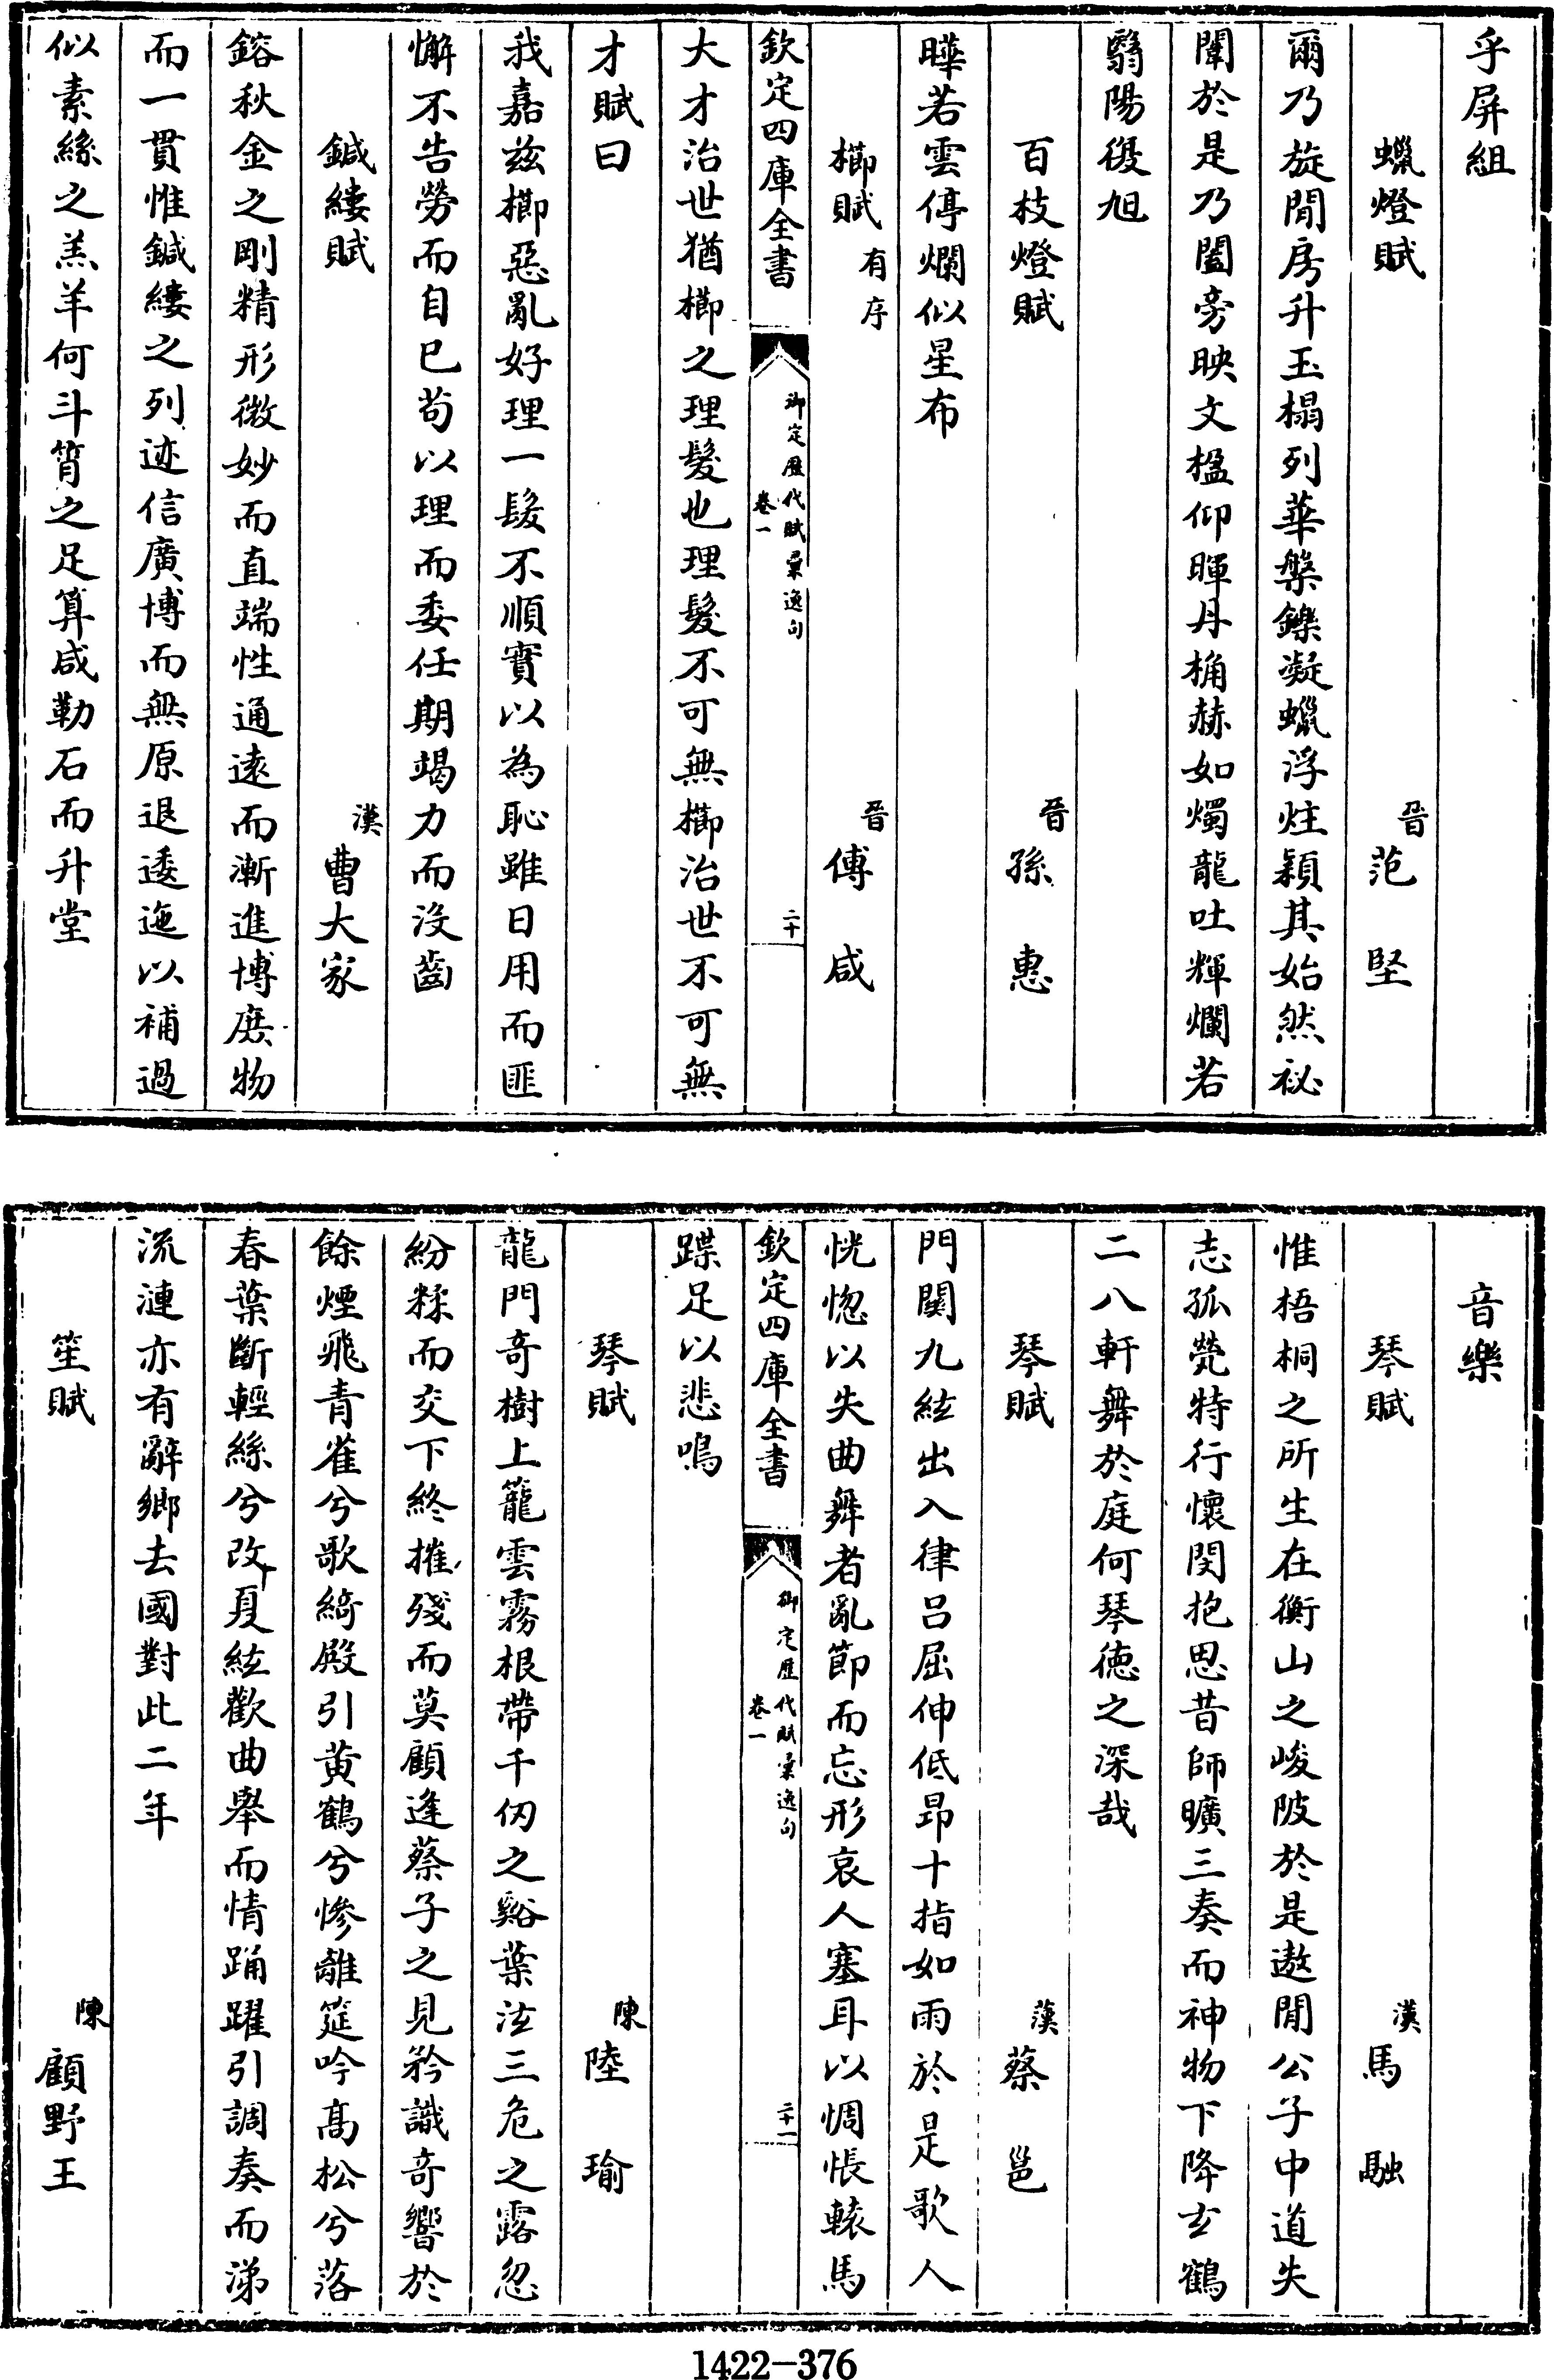 乎屏組
蠟燈賦
晉范堅
爾乃旋閒房升玉榻列華槃鑠凝蠟浮炷穎其始然祕
闈於是乃闔旁映文楹仰暉丹桷赫如燭龍吐輝爛若
翳陽復旭
百枝燈賦
晉孫惠
曄若雲停爛似星布
櫛賦有序
晉傅咸
欽定四庫全書
御定歷代賦彙逸句
卷一
二十
大才治世猶櫛之理髮也理髮不可無櫛治世不可無
才賦曰
我嘉兹櫛惡亂好理一髮不順實以為恥雖日用而匪
懈不告勞而自已苟以理而委任期竭力而没齒
鍼縷賦
漢曹大家
鎔秋金之剛精形微妙而直端性通遠而漸進博庶物
而一貫惟鍼縷之列迹信廣博而無原退逶迤以補過
似素絲之羔羊何斗筲之足算咸勒石而升堂
音樂
琴賦
漢馬融
惟梧桐之所生在衡山之峻陂於是遨閒公子中道失
志孤煢特行懷閔抱思昔師曠三奏而神物下降玄鶴
二八軒舞於庭何琴徳之深哉
琴賦
漢蔡邕
門闗九絃出入律吕屈伸低昂十指如雨於是歌人
恍惚以失曲舞者亂節而忘形哀人塞耳以惆悵轅馬
欽定四庫全書
御定歷代賦彙逸句
卷一
二十一
蹀足以悲鳴
琴賦
陳陸瑜
龍門奇樹上籠雲霧根帶千仞之谿葉泫三危之露忽
紛糅而交下終摧殘而莫顧逢蔡子之見矜識奇響於
餘煙飛青雀兮歌綺殿引黄鶴兮慘離筵吟髙松兮落
春葉斷輕絲兮改夏絃歡曲舉而情踊躍引調奏而涕
流漣亦有辭鄉去國對此二年
笙賦
陳顧野王
1422-376